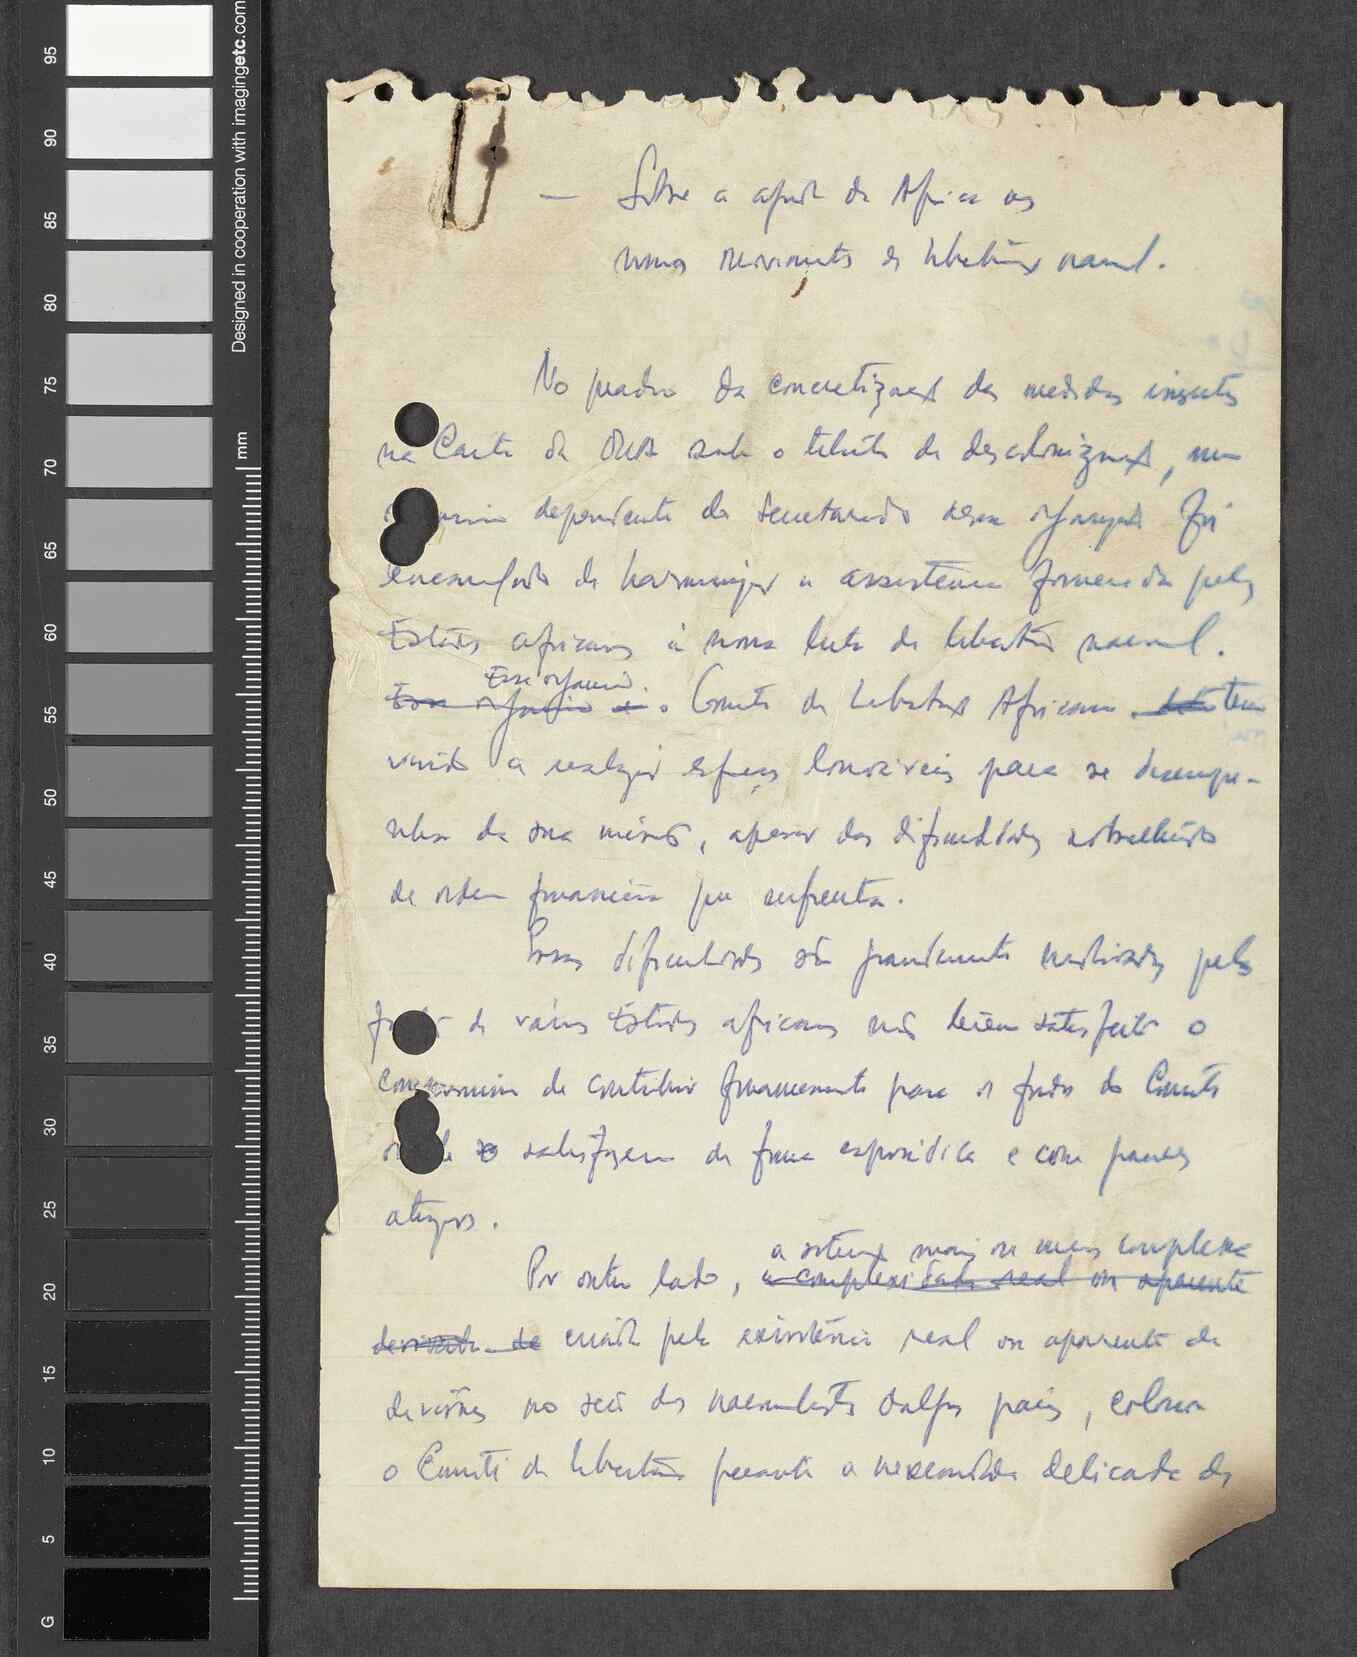 Designed in cooperation with imagingetc.com
mm
95
90
85
80
75
70
65
60
55
50
45
40
35
30
25
20
15
10
5
G
— Sobre a ajuda da Africa aos
nossos movimentos de libertação nacional.
No quadro da concretização das medidas insertas
na Carta da OUA sobre o de descolonização, um
organismo dependente do Secretariado dessa organização foi
encarregado de harmonizar a assistência fornecida pelos
Estados africanos à nossa luta de libertação nacional.
Esse organismo.
Esse organismo é o Comité de Libertação Africano tem
vindo a realizar esforços louváveis para se desempe-
nhar da sua missão, apesar das dificuldades sobretudo
de ordem financeira que enfrenta.
Essas dificuldades são grandemente motivadas pelo
facto de vários Estados africanos não terem satisfeito o
compromisso de contribuir financeiramente para os fundos do Comité
ou de o satisfazerem de forma esporádica e com grandes
atrazos.
a situação mais ou menos complexa
Por outro lado, a complexidade real ou aparente
derivada de criada pela existência real ou aparente de
divisões no seio dos nacionalistas dalguns países, coloca
o Comité de libertação perante a necessidade delicada de